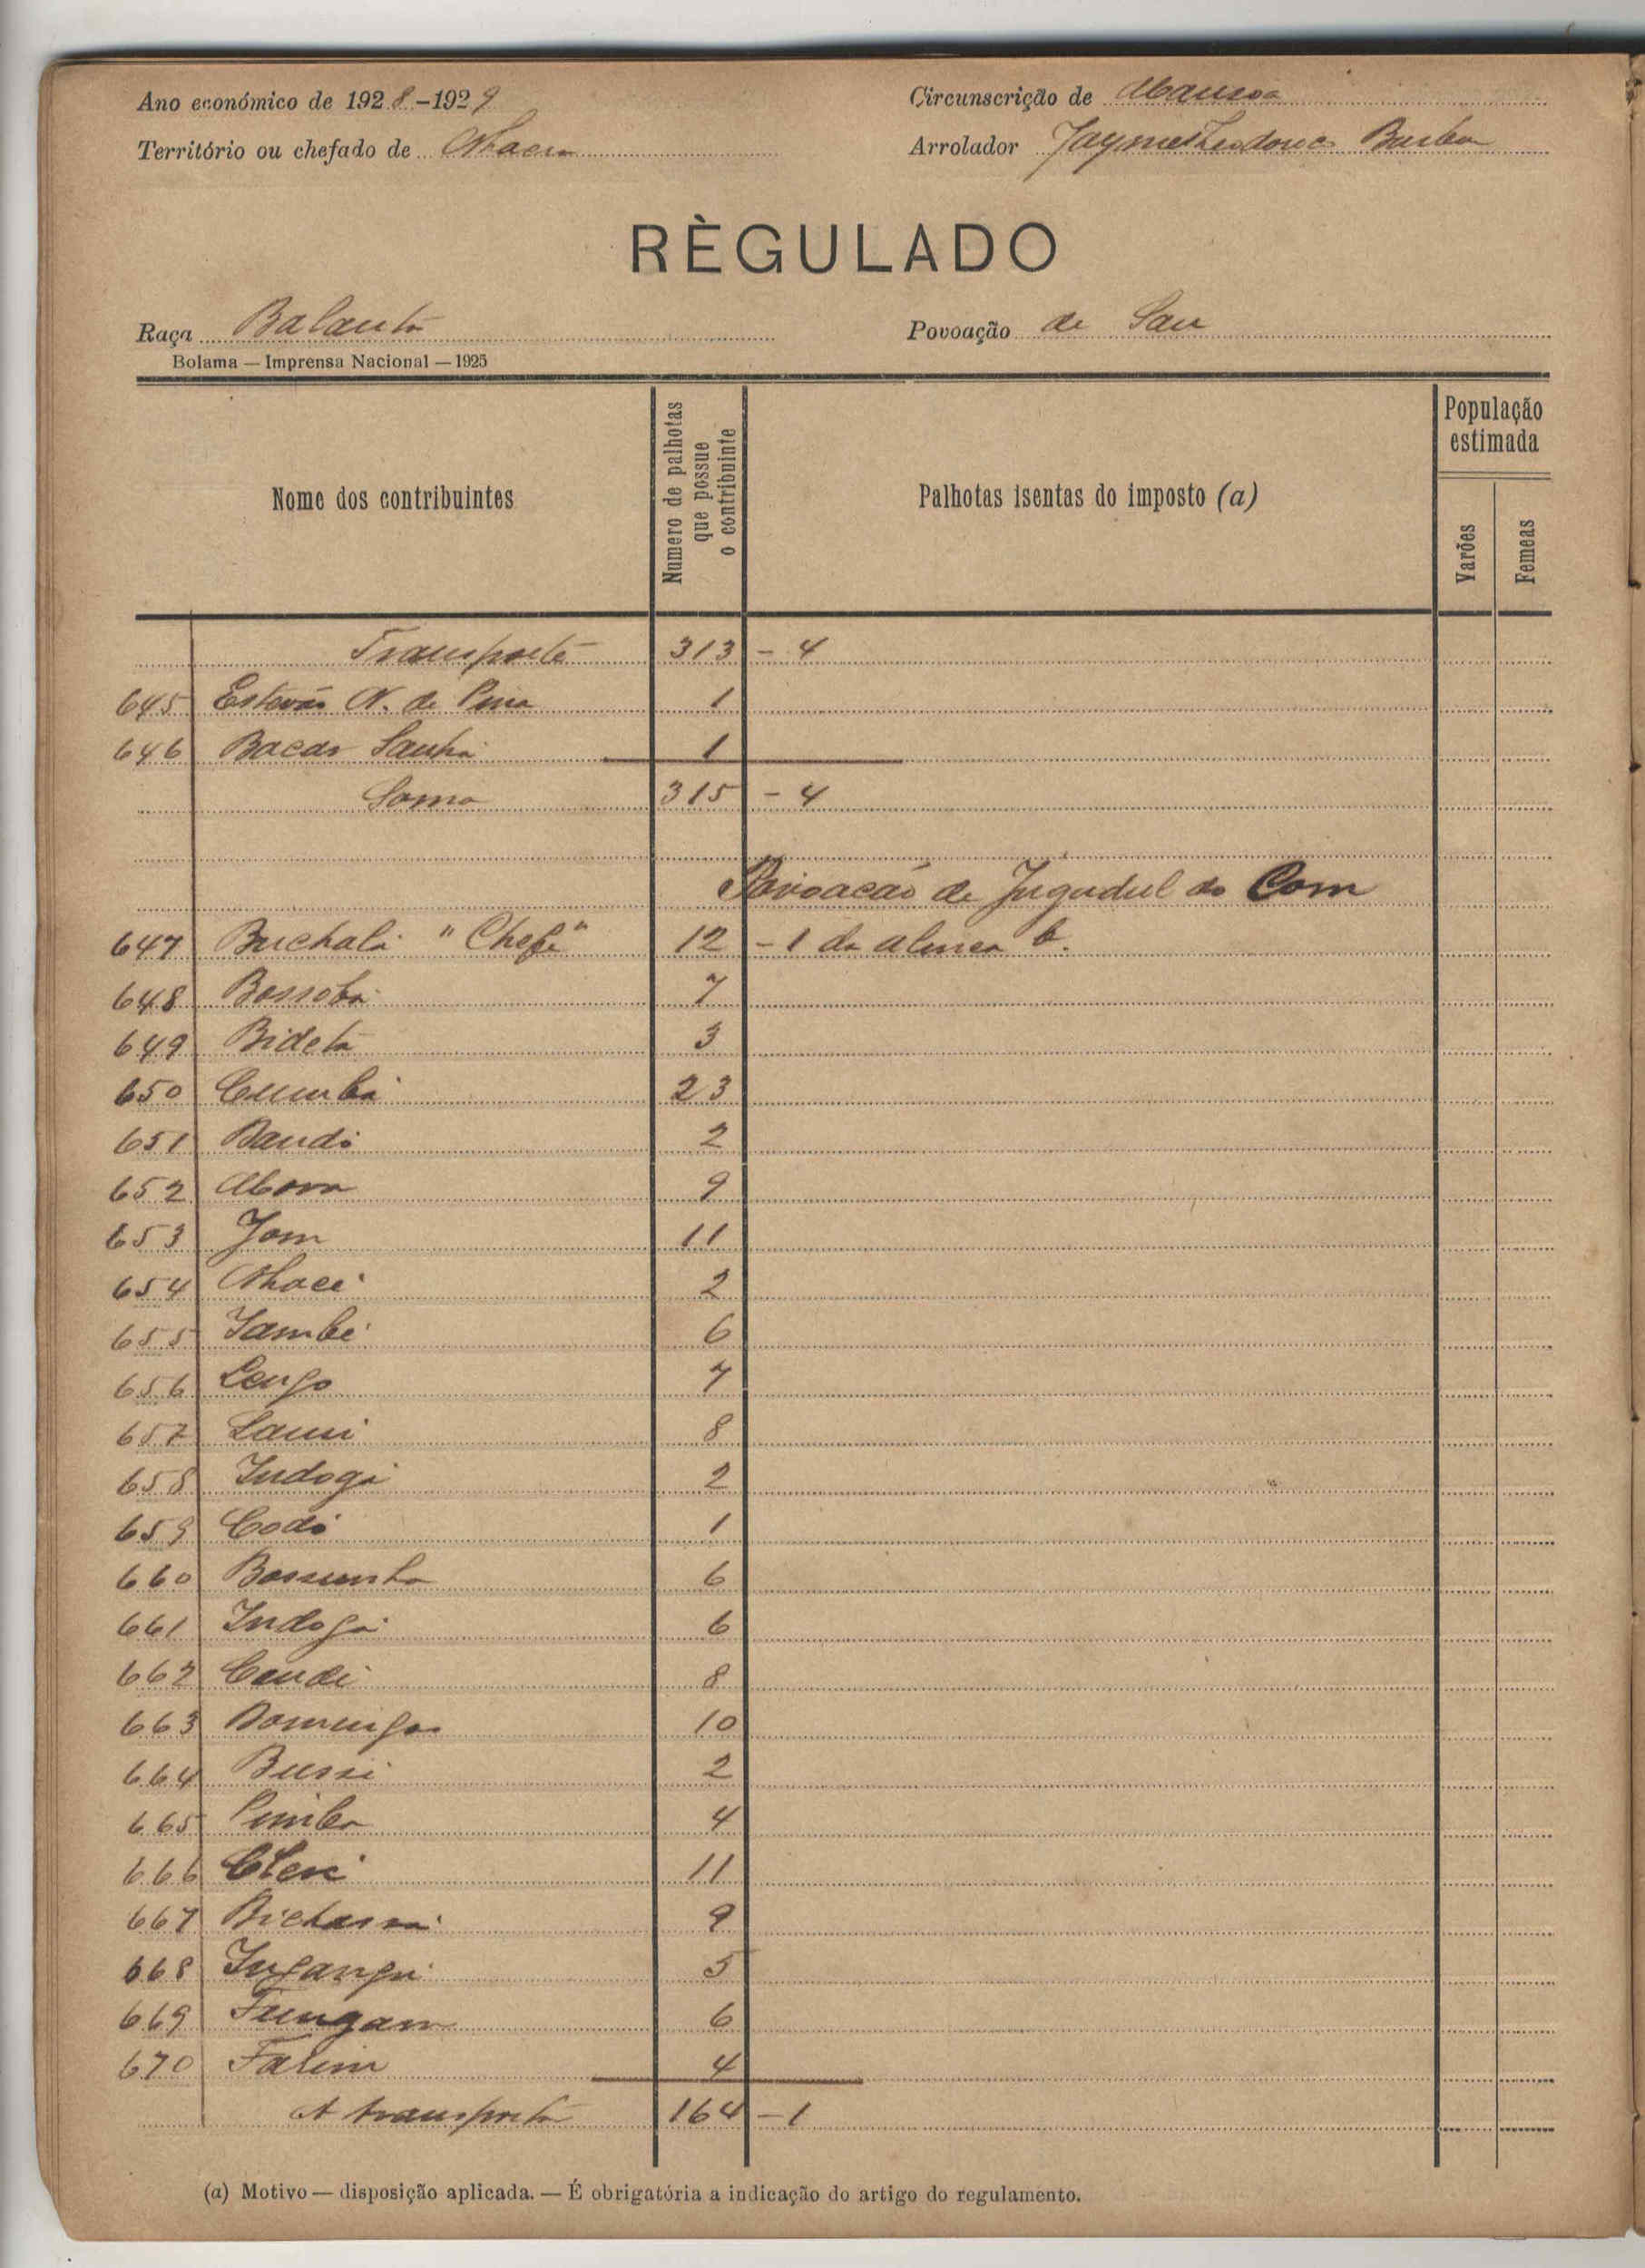 Ano económico de 1928-1929
Circunscrição de Mansoa
Território ou chefado de Nhacra
Arrolador Jayme Theodorico Barbosa
RÈGULADO
Raça Balanta
Povoação de San
Bolama — Imprensa Nacional — 1925
Nome dos contribuintes
Numero de palhotas que possue o contribuinte
Palhotas isentas do imposto (a)
População estimada
Varões
Femeas
Transporte 313 - 4
645 Estevão N. de Pina 1
646 Bacar Sanhá 1
Soma 315 - 4
Povoacão de Jugudul do Com
647 Buchalá "Chefe" 12 - 1 da alinea b.
648 Bossobá 7
649 Bidetá 3
650 Cumbá 23
651 Bandi 2
652 9
653 Jom 11
654 Nhacé 2
655 Jambé 6
656 Lengo 7
657 8
658 Indogá 2
659 Codó 1
660 6
661 Indogá 6
662 8
663 Domingos 10
664 Bussi 2
665 4
666 11
667 9
668 5
669 Fungam 6
670 Falim 4
A transportar 164 - 1
(a) Motivo — disposição aplicada. — É obrigatória a indicação do artigo do regulamento.